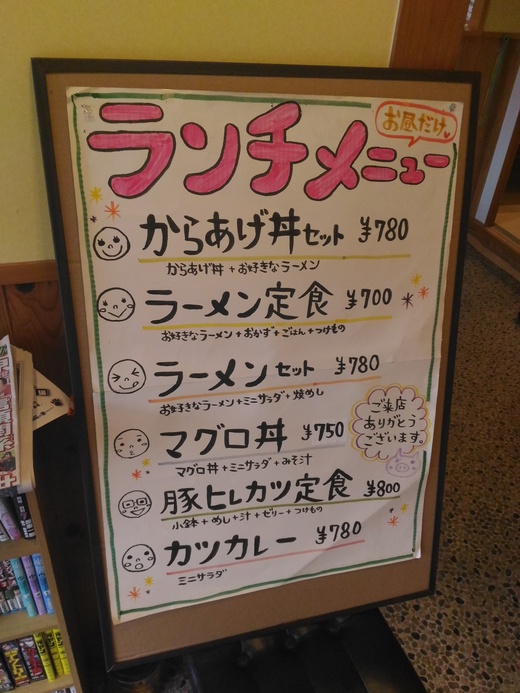 ランチメニュー
お昼だけ
からあげ丼セット ¥780
からあげ丼 + お好きなラーメン
ラーメン定食 ¥700
お好きなラーメン + おかず + ごはん + つけもの
ラーメンセット ¥780
お好きなラーメン + ミニサラダ + 焼めし
マグロ丼 ¥750
マグロ丼 + ミニサラダ + みそ汁
ご来店
ありがとう
ございます。
豚ヒレカツ定食 ¥800
小鉢 + めし + 汁 + ゼリー + つけもの
カツカレー ¥780
ミニサラダ